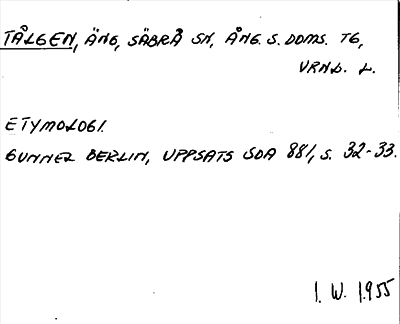 TÅLGEN, ÄNG, SÄBRÅ SN, ÅNG. S. DOMS. TG,
VRNL. L.
ETYMOLOGI.
GUNNEL BERLIN, UPPSATS SOA 881, S. 32-33.
I. W. 1955